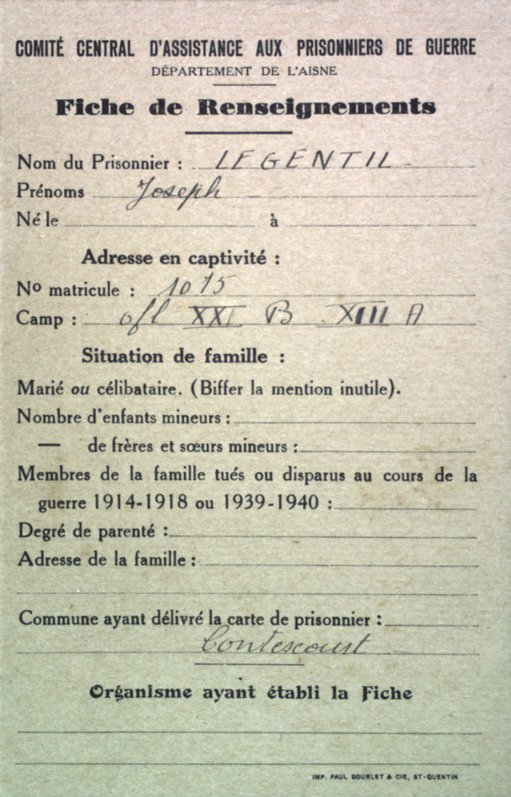 COMITÉ CENTRAL D'ASSISTANCE AUX PRISONNIERS DE GUERRE
DÉPARTEMENT DE L'AISNE
Fiche de Renseignements
Nom du Prisonnier : LEGENTIL
Prénoms Joseph
Né le à
Adresse en captivité :
No matricule : 1015
Camp : ofl XXI B XIII A
Situation de famille :
Marié ou célibataire. (Biffer la mention inutile).
Nombre d'enfants mineurs :
— de frères et sœurs mineurs :
Membres de la famille tués ou disparus au cours de la
guerre 1914-1918 ou 1939-1940 :
Degré de parenté :
Adresse de la famille :
Commune ayant délivré la carte de prisonnier :
Contescourt
Organisme ayant établi la Fiche
IMP. PAUL BOURLET & CIE, ST-QUENTIN